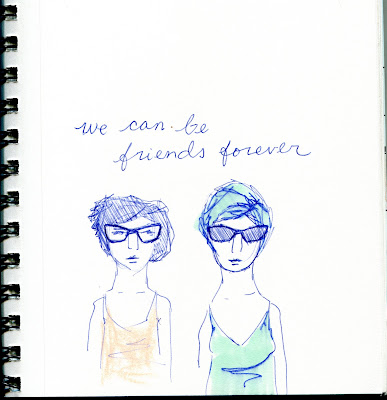 we can be
friends forever